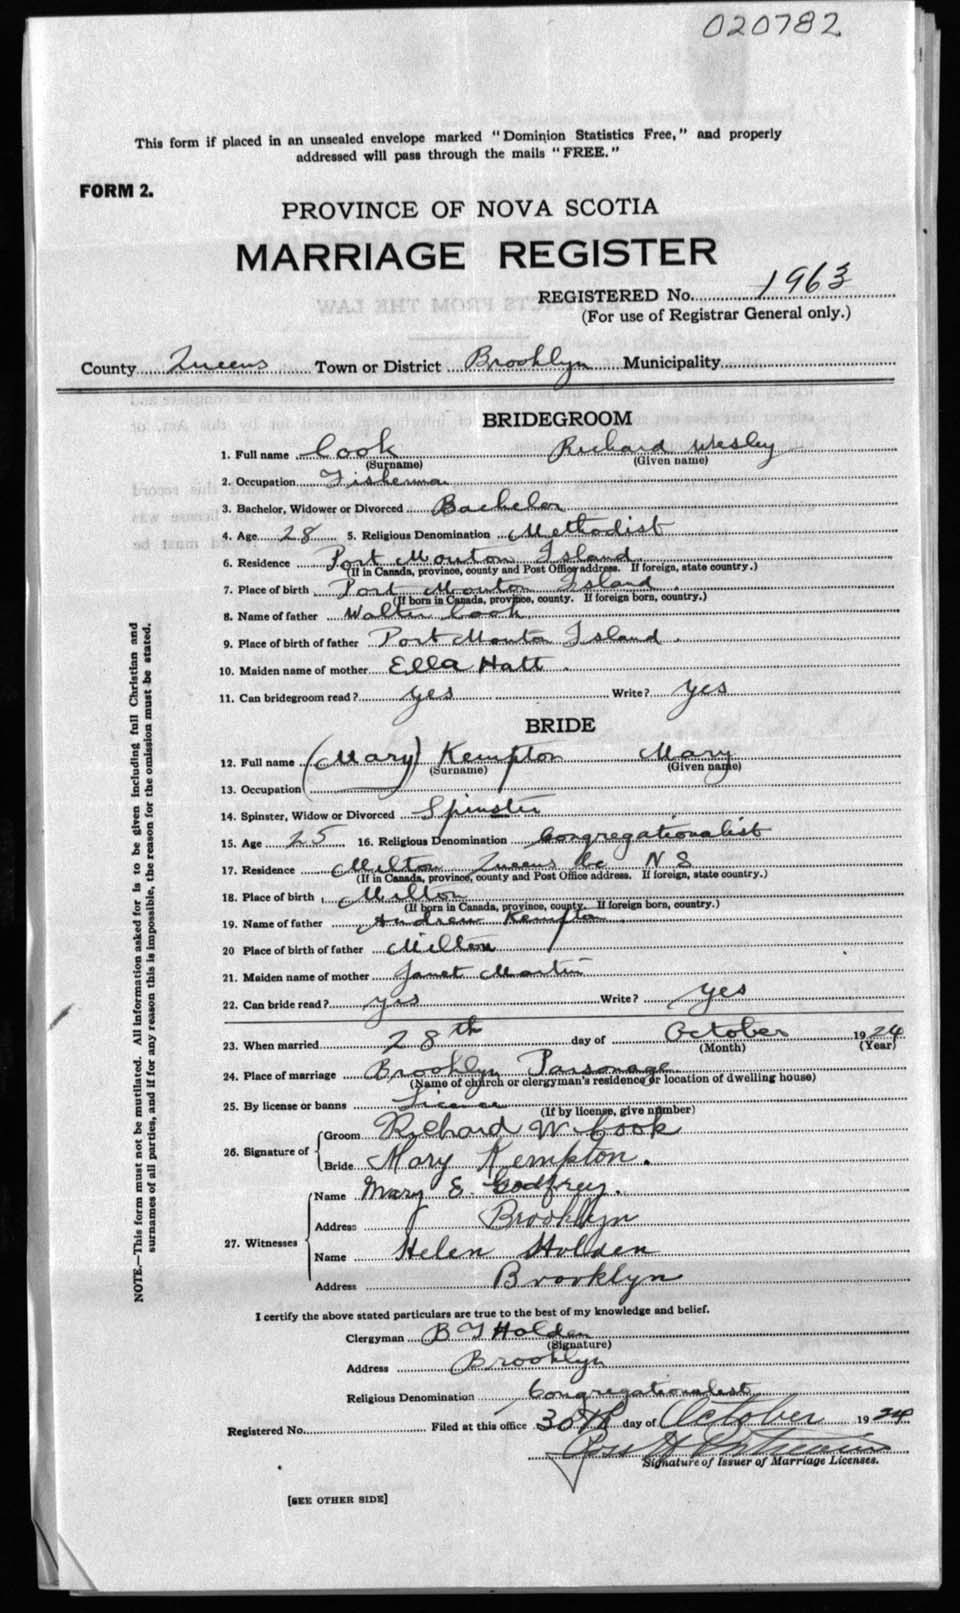 020782
This form if placed in an unsealed envelope marked "Dominion Statistics Free," and properly
addressed will pass through the mails "FREE."
FORM 2.
PROVINCE OF NOVA SCOTIA
MARRIAGE REGISTER
REGISTERED No. 1963
(For use of Registrar General only.)
County Queens Town or District Brooklyn Municipality
BRIDEGROOM
1. Full name Cook Richard Wesley
(Surname) (Given name)
2. Occupation Fisherman
3. Bachelor, Widower or Divorced Bachelor
4. Age 28 5. Religious Denomination Methodist
6. Residence Port Mouton Island
(If in Canada, province, county and Post Office address. If foreign, state country.)
7. Place of birth Port Mouton Island.
(If born in Canada, province, county. If foreign born, country.)
8. Name of father Walter Cook.
9. Place of birth of father Port Mouton Island.
10. Maiden name of mother Ella Hatt.
11. Can bridegroom read? yes Write? yes
BRIDE
12. Full name (Mary) Kempton Mary
(Surname) (Given name)
13. Occupation
14. Spinster, Widow or Divorced Spinster
15. Age 25 16. Religious Denomination Congregationalist
17. Residence Milton Queens Co N S
(If in Canada, province, county and Post Office address. If foreign, state country.)
18. Place of birth Milton
(If born in Canada, province, county. If foreign born, country.)
19. Name of father Andrew Kempton
20 Place of birth of father Milton
21. Maiden name of mother Janet Martin
22. Can bride read? yes Write? yes
23. When married 28th day of October 1924
(Month) (Year)
24. Place of marriage Brooklyn Parsonage
(Name of church or clergyman's residence or location of dwelling house)
25. By license or banns Licence
(If by license, give number)
26. Signature of Groom Richard W Cook
Bride Mary Kempton.
27. Witnesses Name Mary E. Godfrey.
Address Brooklyn
Name Helen Holden
Address Brooklyn
I certify the above stated particulars are true to the best of my knowledge and belief.
Clergyman B J Holden
(Signature)
Address Brooklyn
Religious Denomination Congregationalist
Registered No. Filed at this office 30th day of October 1924
Signature of Issuer of Marriage Licenses.
[SEE OTHER SIDE]
NOTE.—This form must not be mutilated. All information asked for is to be given including full Christian and
surnames of all parties, and if for any reason this is impossible, the reason for the omission must be stated.